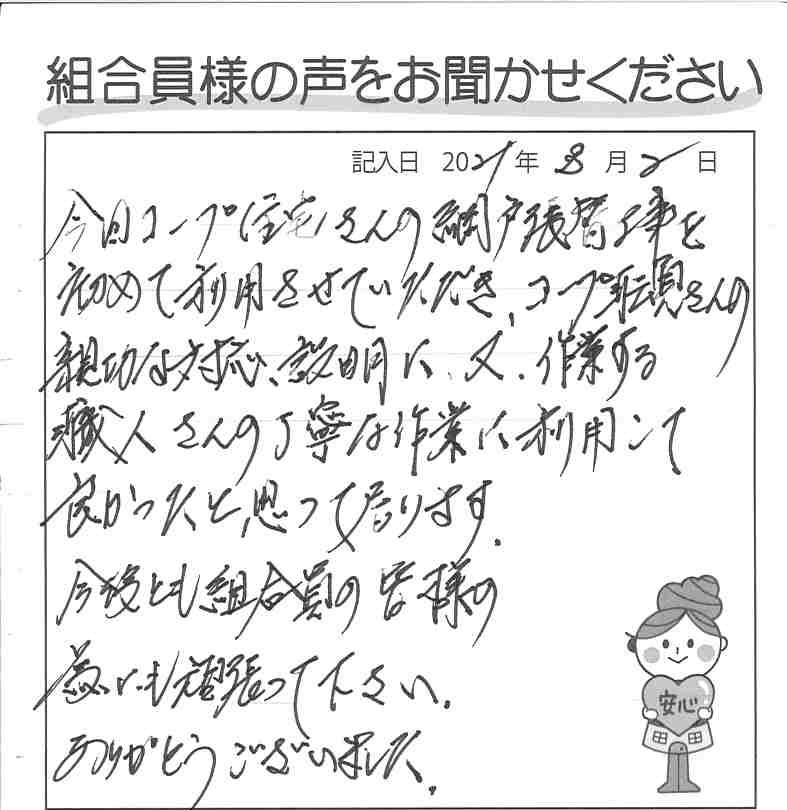 組合員様の声をお聞かせください
記入日 2021年 8月 2日
今回コープ住宅さんの網戸張替工事を
初めて利用させていただき、コープ さんの
親切な対応、説明に、又、作業する
職人さんの丁寧な作業に利用して
良かったと思って居ります。
今後とも組合員の皆様の
為にも頑張って下さい。
ありがとうございました。
安心